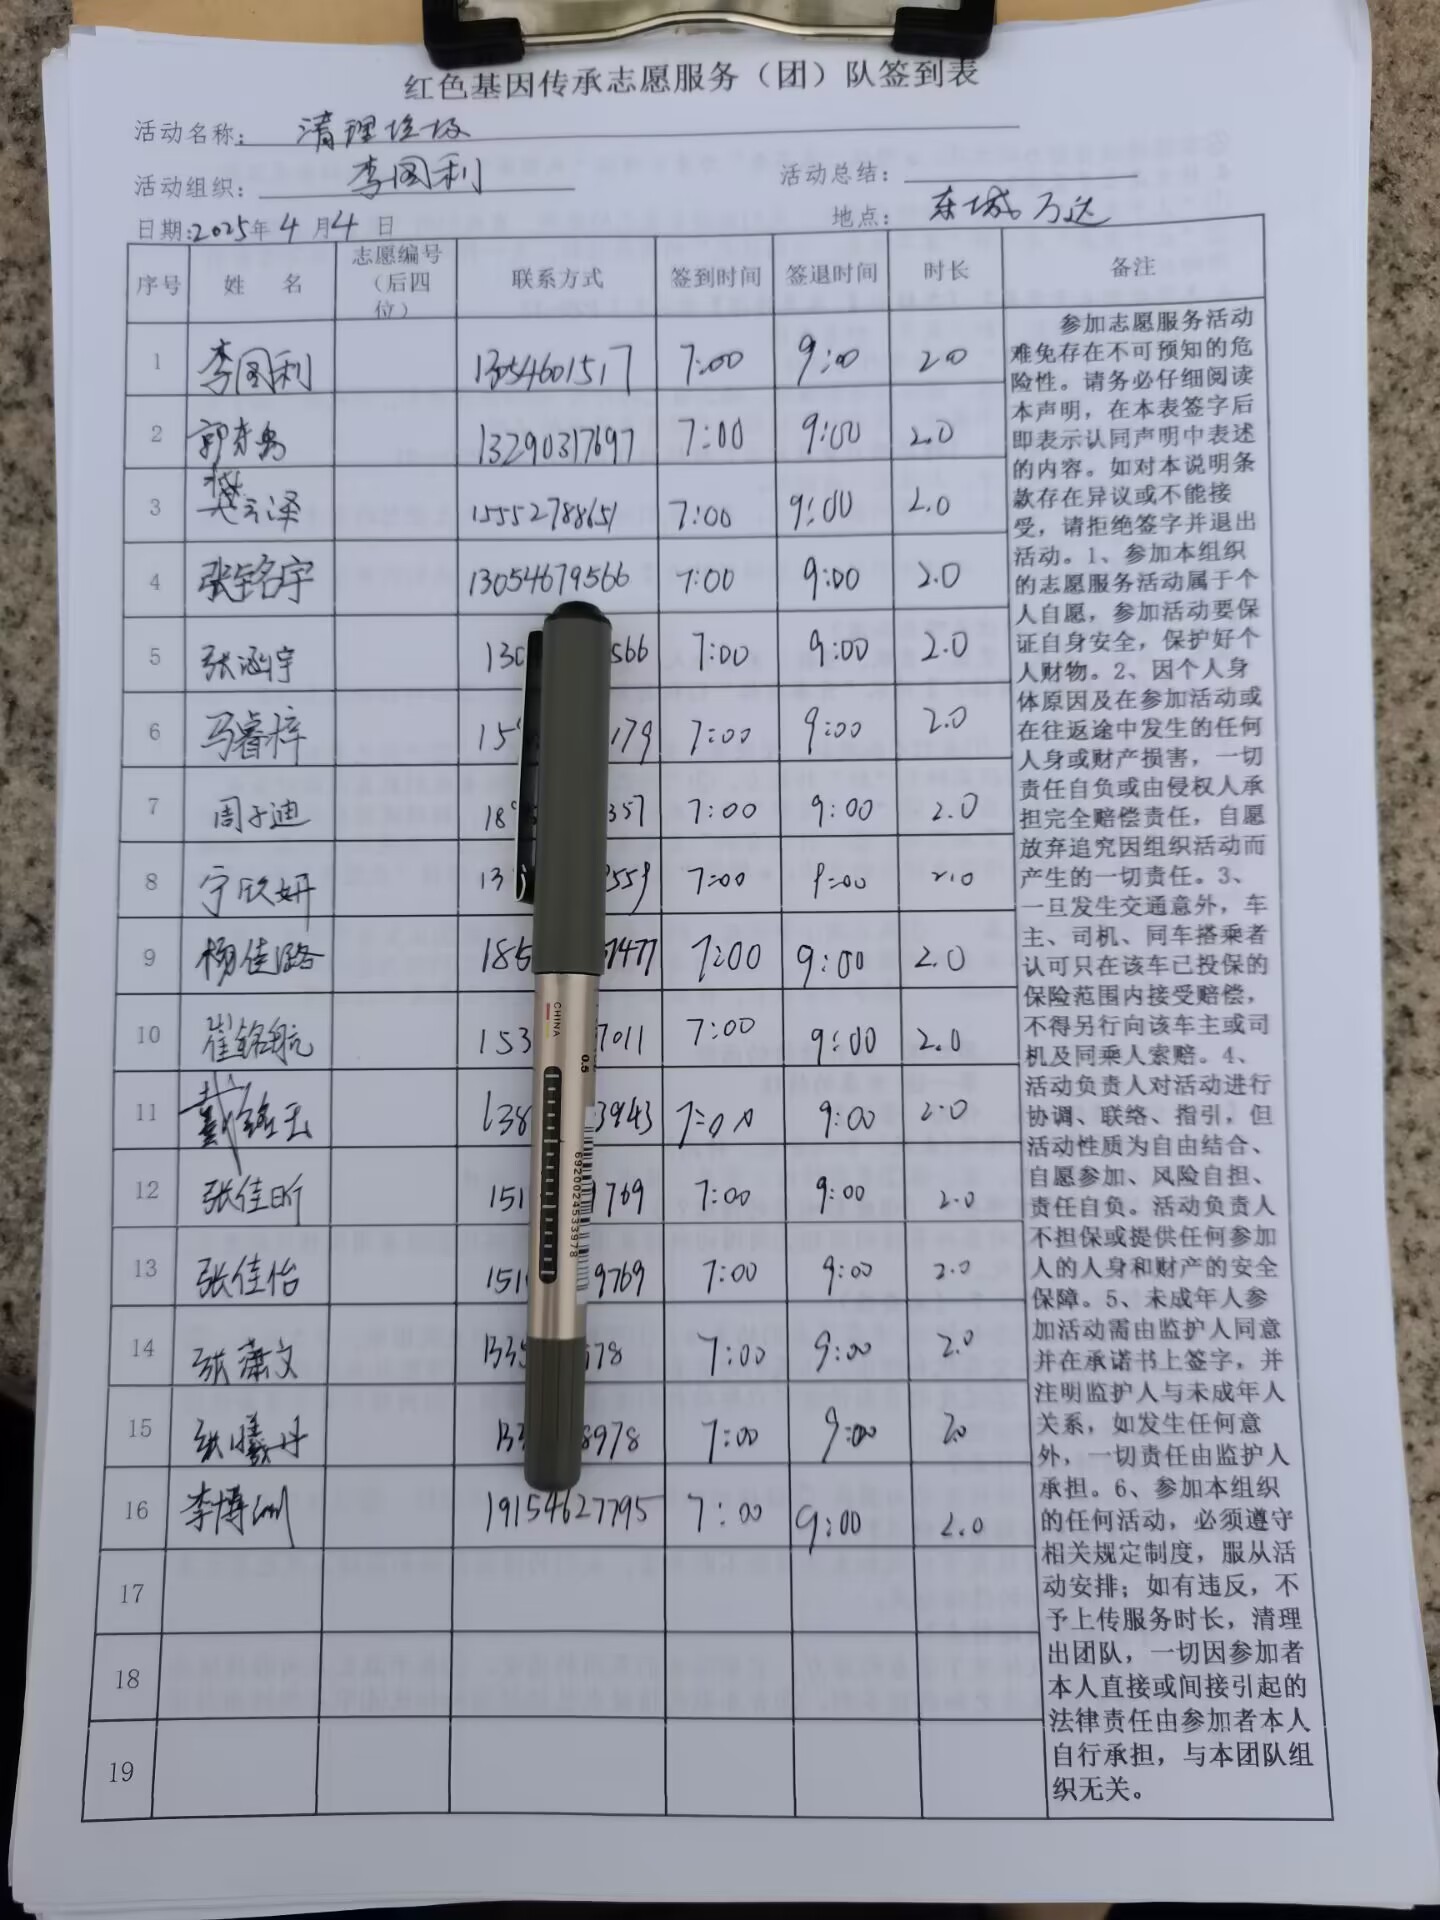 红色基因传承志愿服务（团）队签到表
活动名称：清理垃圾
活动组织：李图利 活动总结：
日期：2025年4月4日 地点：东城万达
序号 姓 名 志愿编号（后四位） 联系方式 签到时间 签退时间 时长 备注
1 李图利 13054601517 7:00 9:00 2.0
2 13290317697 7:00 9:00 2.0
3 15552788651 7:00 9:00 2.0
4 张铭宇 13054679566 7:00 9:00 2.0
5 张涵宇 130 566 7:00 9:00 2.0
6 马睿梓 15 179 7:00 9:00 2.0
7 周子迪 18 357 7:00 9:00 2.0
8 宁欣妍 13 559 7:00 9:00 2.0
9 杨佳璐 185 7477 7:00 9:00 2.0
10 崔铭航 153 7011 7:00 9:00 2.0
11 138 3943 7:00 9:00 2.0
12 张佳昕 151 769 7:00 9:00 2.0
13 张佳怡 151 9769 7:00 9:00 2.0
14 张潇文 133 78 7:00 9:00 2.0
15 张曦丹 13 8978 7:00 9:00 2.0
16 李博洲 19154627795 7:00 9:00 2.0
17
18
19
参加志愿服务活动
难免存在不可预知的危
险性。请务必仔细阅读
本声明，在本表签字后
即表示认同声明中表述
的内容。如对本说明条
款存在异议或不能接
受，请拒绝签字并退出
活动。1、参加本组织
的志愿服务活动属于个
人自愿，参加活动要保
证自身安全，保护好个
人财物。2、因个人身
体原因及在参加活动或
在往返途中发生的任何
人身或财产损害，一切
责任自负或由侵权人承
担完全赔偿责任，自愿
放弃追究因组织活动而
产生的一切责任。3、
一旦发生交通意外，车
主、司机、同车搭乘者
认可只在该车已投保的
保险范围内接受赔偿，
不得另行向该车主或司
机及同乘人索赔。4、
活动负责人对活动进行
协调、联络、指引，但
活动性质为自由结合、
自愿参加、风险自担、
责任自负。活动负责人
不担保或提供任何参加
人的人身和财产的安全
保障。5、未成年人参
加活动需由监护人同意
并在承诺书上签字，并
注明监护人与未成年人
关系，如发生任何意
外，一切责任由监护人
承担。6、参加本组织
的任何活动，必须遵守
相关规定制度，服从活
动安排；如有违反，不
予上传服务时长，清理
出团队，一切因参加者
本人直接或间接引起的
法律责任由参加者本人
自行承担，与本团队组
织无关。
CHINA
0.5
6920024533978